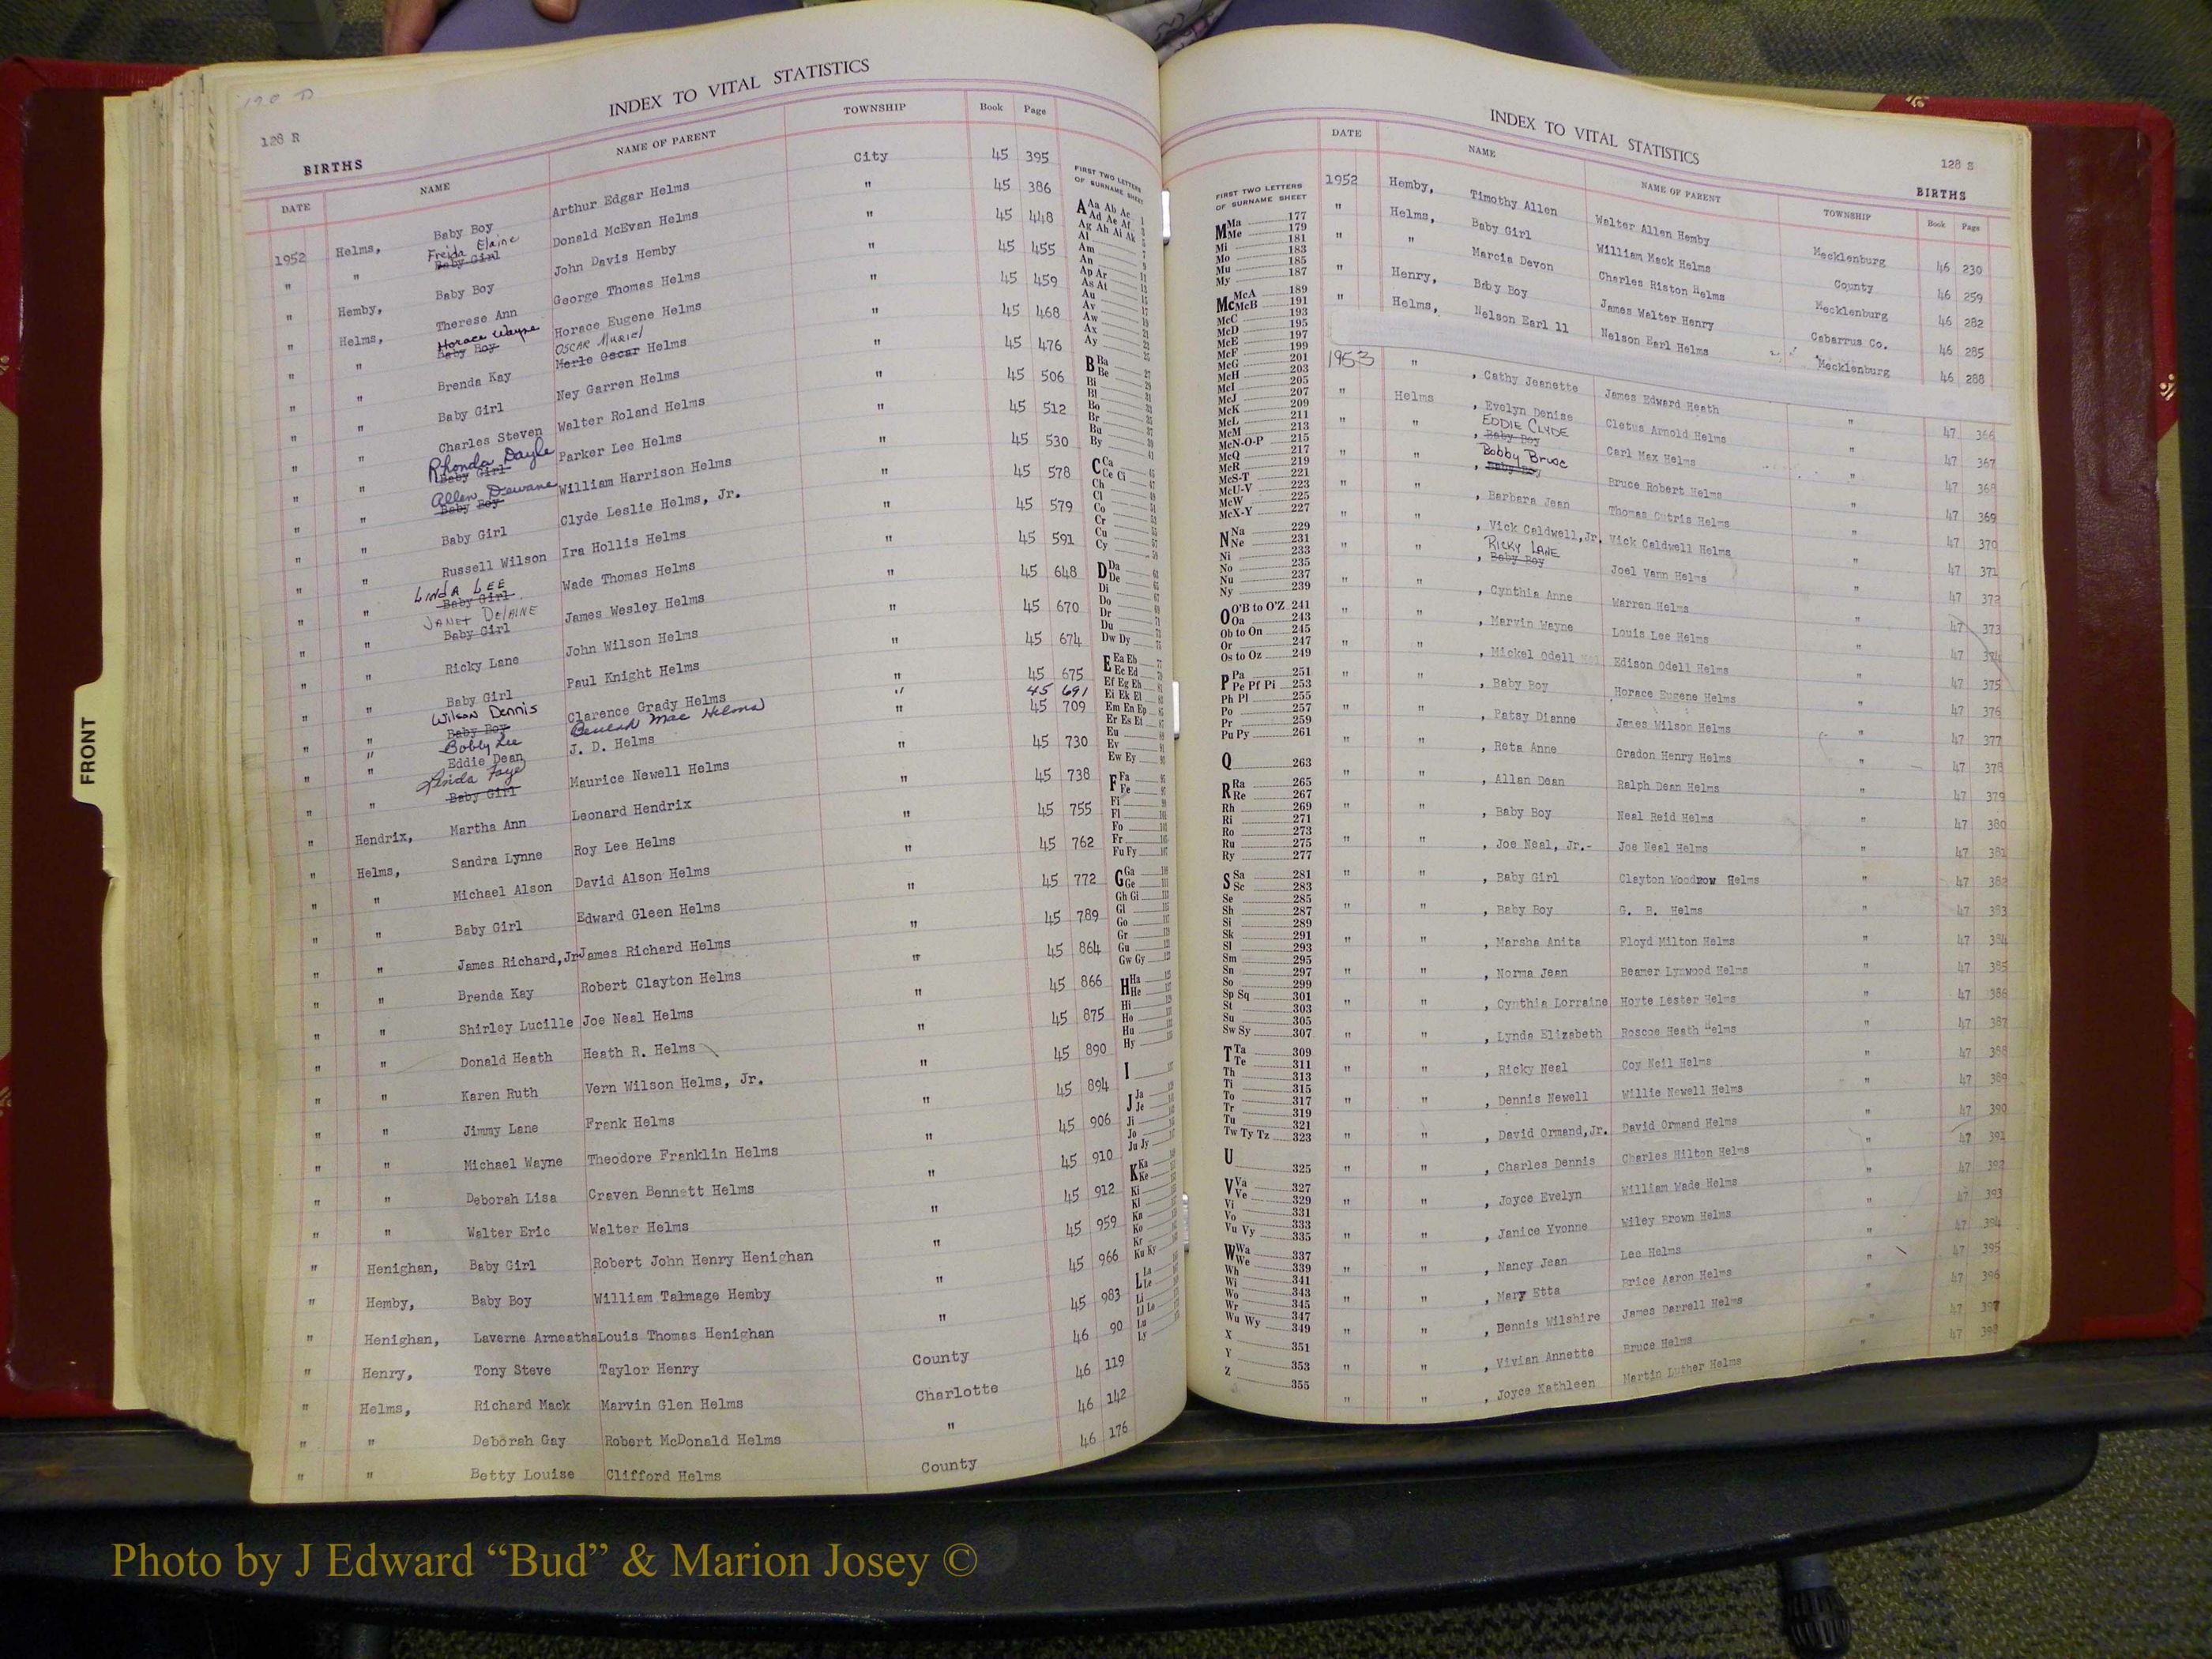 128 R
INDEX TO VITAL STATISTICS
BIRTHS
DATE NAME NAME OF PARENT TOWNSHIP Book Page
1952 Helms, Baby Boy Arthur Edgar Helms City 45 395
" " Freida Elaine Baby Girl Donald McEvan Helms " 45 386
" Hemby, Baby Boy John Davis Hemby " 45 448
" Helms, Therese Ann George Thomas Helms " 45 455
" " Horace Wayne Baby Boy Horace Eugene Helms " 45 459
" " Brenda Kay OSCAR MURIEL Merle Oscar Helms " 45 468
" " Baby Girl Ney Garren Helms " 45 476
" " Charles Steven Walter Roland Helms " 45 506
" " Rhonda Dayle Baby Girl Parker Lee Helms " 45 512
" " Allen Dewane Baby Boy William Harrison Helms " 45 530
" " Baby Girl Clyde Leslie Helms, Jr. " 45 578
" " Russell Wilson Ira Hollis Helms " 45 579
" " LINDA LEE Baby Girl Wade Thomas Helms " 45 591
" " JANET DELAINE Baby Girl James Wesley Helms " 45 648
" " Ricky Lane John Wilson Helms " 45 670
" " Baby Girl Paul Knight Helms " 45 674
" " Wilson Dennis Baby Boy Clarence Grady Helms " 45 675
" Bobby Lee Beulah Mae Helms " 45 691
" " Eddie Dean J. D. Helms " 45 709
" " Linda Faye Baby Girl Maurice Newell Helms " 45 730
" Hendrix, Martha Ann Leonard Hendrix " 45 738
" Helms, Sandra Lynne Roy Lee Helms " 45 755
" " Michael Alson David Alson Helms " 45 762
" " Baby Girl Edward Gleen Helms " 45 772
" " James Richard,Jr James Richard Helms " 45 789
" " Brenda Kay Robert Clayton Helms " 45 864
" " Shirley Lucille Joe Neal Helms " 45 866
" " Donald Heath Heath R. Helms " 45 875
" " Karen Ruth Vern Wilson Helms, Jr. " 45 890
" " Jimmy Lane Frank Helms " 45 894
" " Michael Wayne Theodore Franklin Helms " 45 906
" " Deborah Lisa Craven Bennett Helms " 45 910
" " Walter Eric Walter Helms " 45 912
" Henighan, Baby Girl Robert John Henry Henighan " 45 959
" Hemby, Baby Boy William Talmage Hemby " 45 966
" Henighan, Laverne Arneatha Louis Thomas Henighan " 45 983
" Henry, Tony Steve Taylor Henry County 46 90
" Helms, Richard Mack Marvin Glen Helms Charlotte 46 119
" " Deborah Gay Robert McDonald Helms " 46 142
" " Betty Louise Clifford Helms County 46 176
FIRST TWO LETTERS
OF SURNAME SHEET
A Aa Ab Ac
Ad Ae Af
Ag Ah Ai Ak
Al
Am
An
Ap Ar
As At
Au
Av
Aw
Ax
Ay
B Ba
Be
Bi
Bl
Bo
Br
Bu
By
C Ca
Ce Ci
Ch
Cl
Co
Cr
Cu
Cy
D Da
De
Di
Do
Dr
Du
Dw Dy
E Ea Eb
Ec Ed
Ef Eg Eh
Ei Ek El
Em En Ep
Er Es Et
Eu
Ev
Ew Ey
F Fa
Fe
Fi
Fl
Fo
Fr
Fu Fy
G Ga
Ge
Gh Gi
Gl
Go
Gr
Gu
Gw Gy
H Ha
He
Hi
Ho
Hu
Hy
I
J Ja
Je
Ji
Jo
Ju Jy
K Ka
Ke
Ki
Kl
Kn
Ko
Kr
Ku Ky
L La
Le
Li
Ll Lo
Lu
Ly
FIRST TWO LETTERS
OF SURNAME SHEET
M Ma 177
Me 179
Mi 181
Mo 183
Mu 185
My 187
Mc McA 189
McB 191
McC 193
McD 195
McE 197
McF 199
McG 201
McH 203
McI 205
McJ 207
McK 209
McL 211
McM 213
McN-O-P 215
McQ 217
McR 219
McS-T 221
McU-V 223
McW 225
McX-Y 227
N Na 229
Ne 231
Ni 233
No 235
Nu 237
Ny 239
O O'B to O'Z 241
Oa 243
Ob to On 245
Or 247
Os to Oz 249
P Pa 251
Pe Pf Pi 253
Ph Pl 255
Po 257
Pr 259
Pu Py 261
Q 263
R Ra 265
Re 267
Rh 269
Ri 271
Ro 273
Ru 275
Ry 277
S Sa 281
Sc 283
Se 285
Sh 287
Si 289
Sk 291
Sl 293
Sm 295
Sn 297
So 299
Sp Sq 301
St 303
Su 305
Sw Sy 307
T Ta 309
Te 311
Th 313
Ti 315
To 317
Tr 319
Tu 321
Tw Ty Tz 323
U 325
V Va 327
Ve 329
Vi 331
Vo 333
Vu Vy 335
W Wa 337
We 339
Wh 341
Wi 343
Wo 345
Wr 347
Wu Wy 349
X 351
Y 353
Z 355
INDEX TO VITAL STATISTICS
128 S
BIRTHS
DATE NAME NAME OF PARENT TOWNSHIP Book Page
1952 Hemby, Timothy Allen Walter Allen Hemby Mecklenburg 46 230
" Helms, Baby Girl William Mack Helms County 46 259
" " Marcia Devon Charles Riston Helms Mecklenburg 46 282
" Henry, Baby Boy James Walter Henry Cabarrus Co. 46 285
" Helms, Nelson Earl 11 Nelson Earl Helms Mecklenburg 46 288
1953 " , Cathy Jeanette James Edward Heath " 47 366
" Helms , Evelyn Denise Cletus Arnold Helms " 47 367
" " EDDIE CLYDE , Baby Boy Carl Max Helms " 47 368
" " Bobby Bruce , Baby Boy Bruce Robert Helms " 47 369
" " , Barbara Jean Thomas Cutris Helms " 47 370
" " , Vick Caldwell,Jr. Vick Caldwell Helms " 47 371
" " RICKY LANE , Baby Boy Joel Vann Helms " 47 372
" " , Cynthia Anne Warren Helms " 47 373
" " , Marvin Wayne Louis Lee Helms " 47 374
" " , Mickel Odell Edison Odell Helms " 47 375
" " , Baby Boy Horace Eugene Helms " 47 376
" " , Patsy Dianne James Wilson Helms " 47 377
" " , Reta Anne Gradon Henry Helms " 47 378
" " , Allan Dean Ralph Dean Helms " 47 379
" " , Baby Boy Neal Reid Helms " 47 380
" " , Joe Neal, Jr.- Joe Neal Helms " 47 381
" " , Baby Girl Clayton Woodrow Helms " 47 382
" " , Baby Boy G. B. Helms " 47 383
" " , Marsha Anita Floyd Milton Helms " 47 384
" " , Norma Jean Beamer Lynwood Helms " 47 385
" " , Cynthia Lorraine Hoyte Lester Helms " 47 386
" " , Lynda Elizabeth Roscoe Heath Helms " 47 387
" " , Ricky Neal Coy Neil Helms " 47 388
" " , Dennis Newell Willie Newell Helms " 47 389
" " , David Ormand,Jr. David Ormand Helms " 47 390
" " , Charles Dennis Charles Hilton Helms " 47 391
" " , Joyce Evelyn William Wade Helms " 47 392
" " , Janice Yvonne Wiley Brown Helms " 47 393
" " , Nancy Jean Lee Helms " 47 394
" " , Mary Etta Brice Aaron Helms " 47 395
" " , Dennis Wilshire James Darrell Helms " 47 396
" " , Vivian Annette Bruce Helms " 47 397
" " , Joyce Kathleen Martin Luther Helms " 47 398
FRONT
Photo by J Edward “Bud” & Marion Josey ©